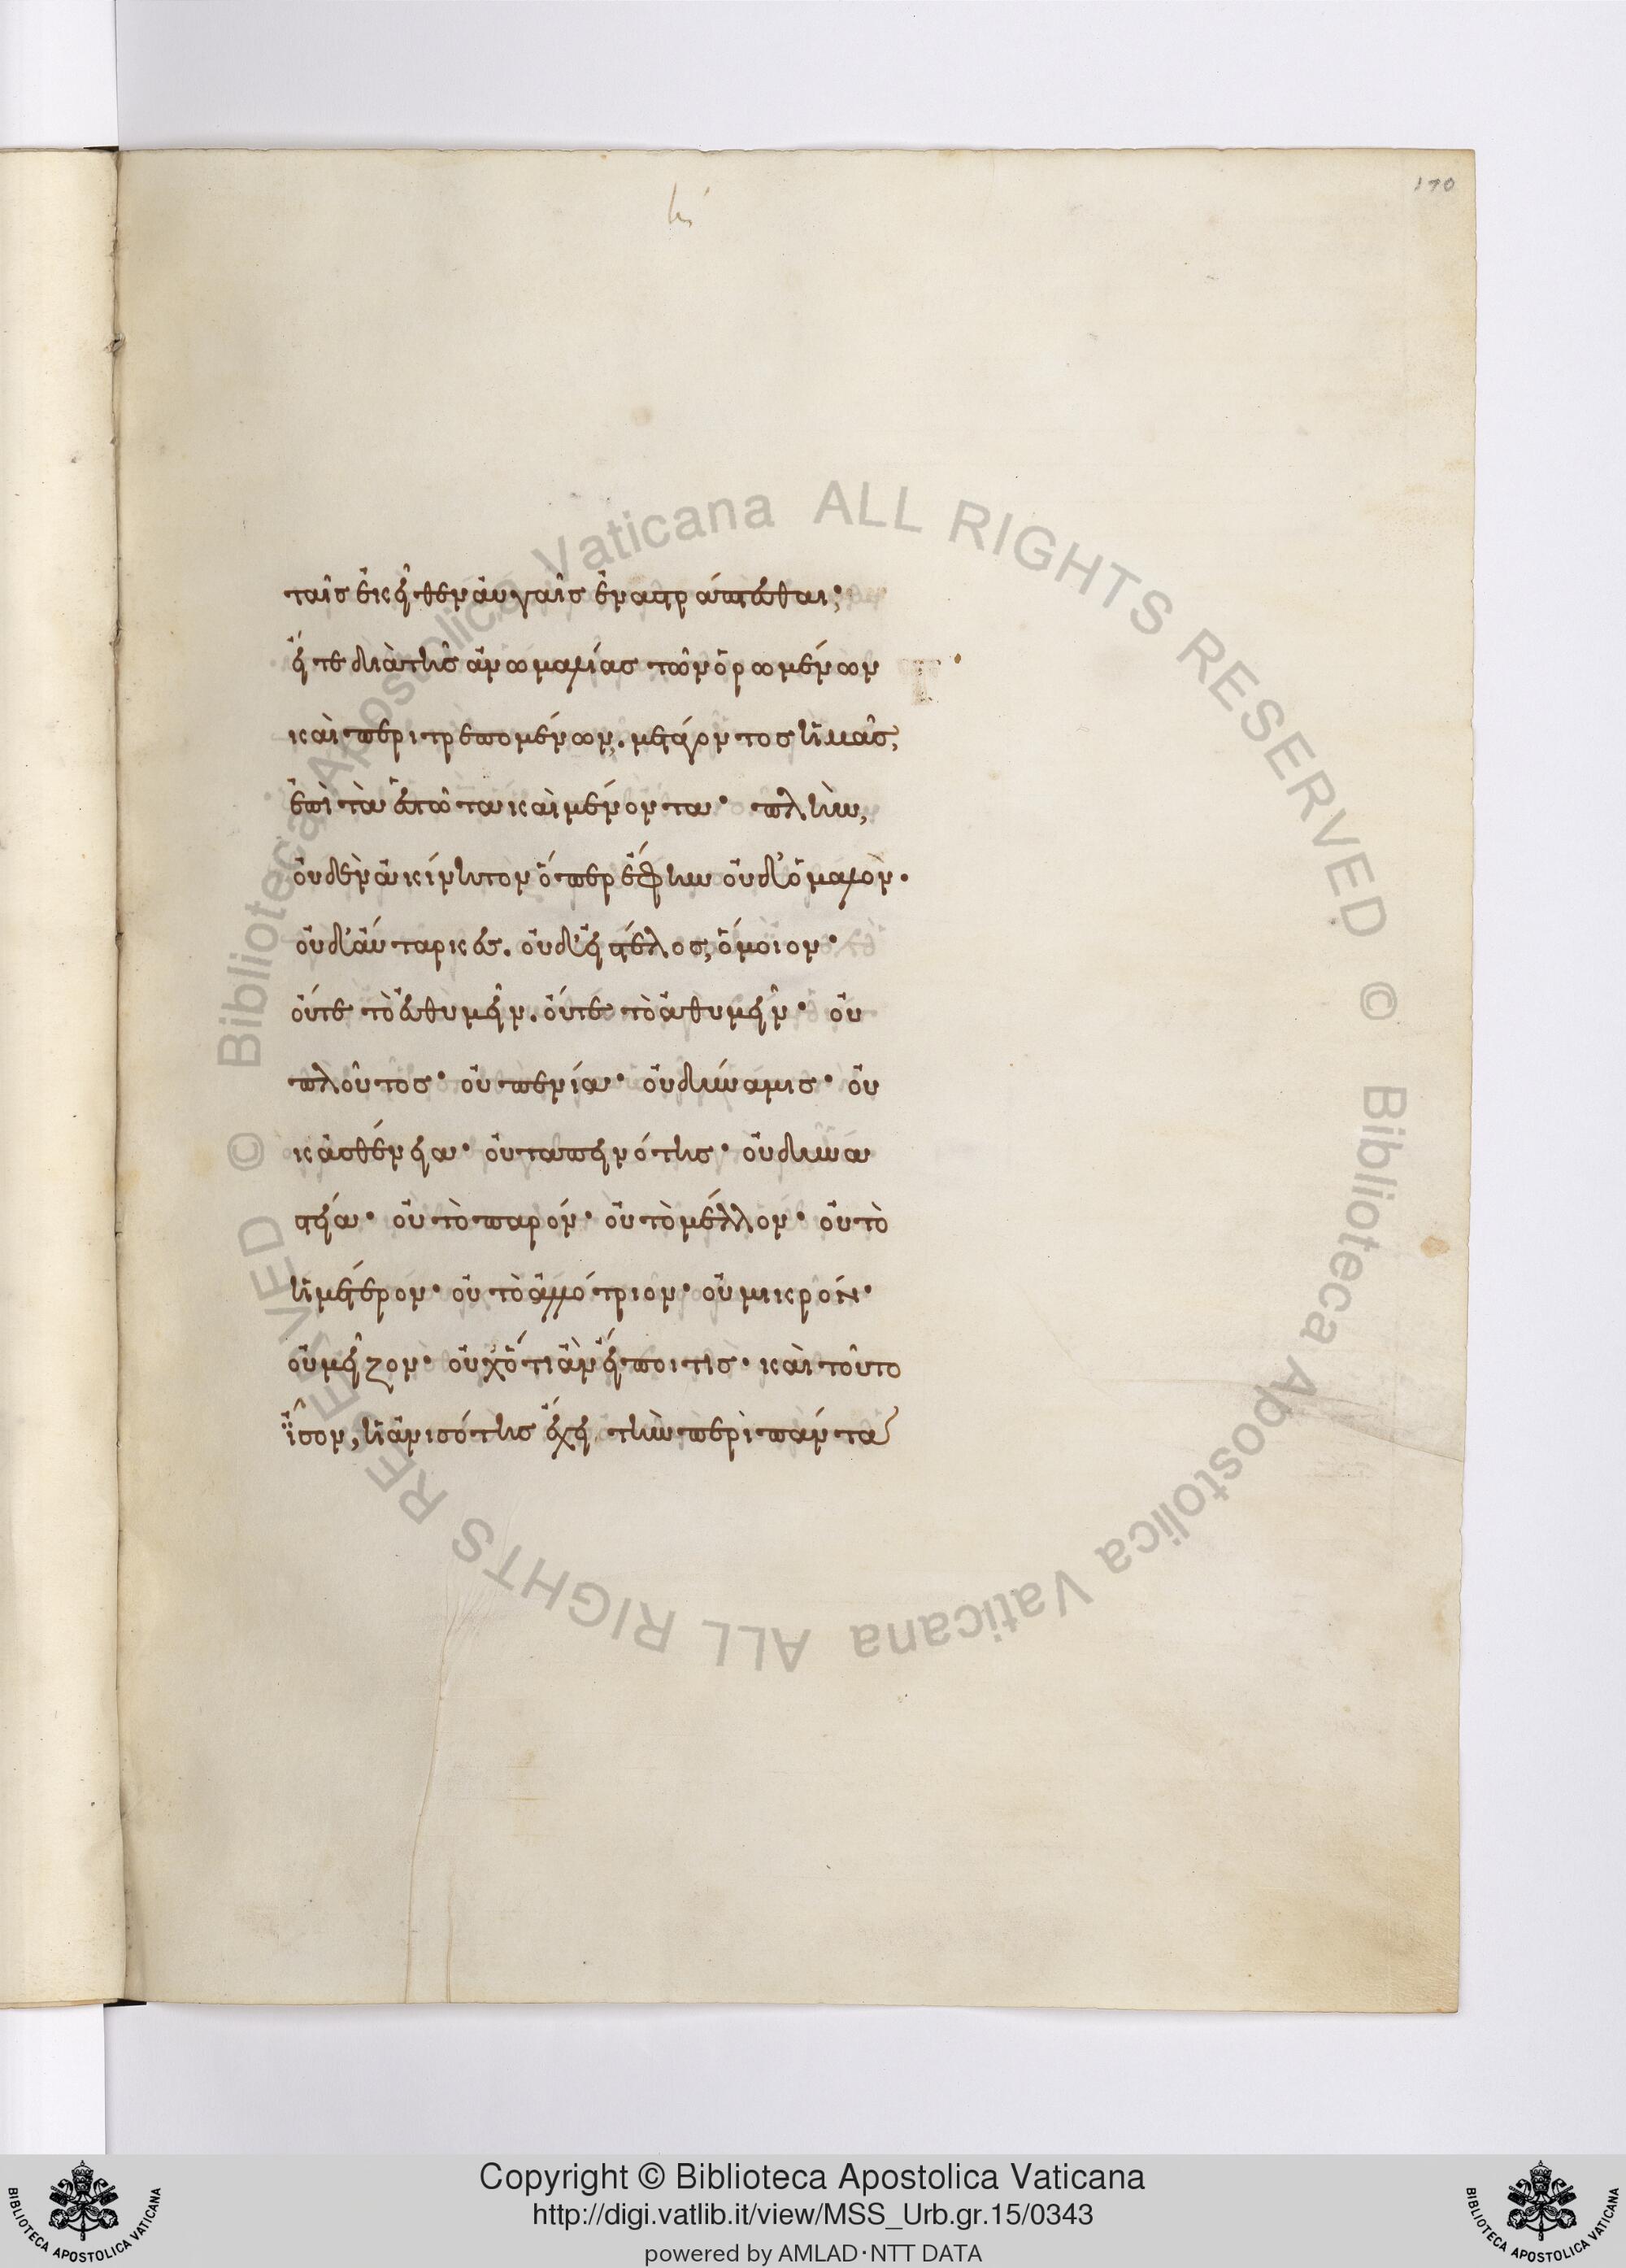 170
ταῖς ἐκεῖθεν αὐγαῖς ἐναστράπτεσθαι·
εἴτε διὰ τῆς ἀνωμαλίας τῶν ὁρωμένων
καὶ περιτρεπομένων. μετάγοντος ἡμᾶς,
ἐπὶ τὰ ἑστῶτα καὶ μένοντα· πλὴν,
οὐδὲν ἀκίνητον ὅπερ ἔφην οὐδ' ὁμαλὸν.
οὐδ' αὔταρκες. οὐδ' εἰς τέλος, ὅμοιον·
οὔτε τὸ εὐθυμεῖν. οὔτε τὸ ἀθυμεῖν· οὐ
πλοῦτος· οὐ πενία· οὐ δύναμις· οὐ
κ ἀσθένεια· οὐ ταπεινότης· οὐ δυνα
στεία· οὐ τὸ παρόν· οὐ τὸ μέλλον· οὐ τὸ
ἡμέτερον· οὐ τὸ ἀλλότριον· οὐ μικρόν·
οὐ μεῖζον· οὐχ ὅτι ἂν εἴποι τις· καὶ τοῦτο
ἴσον, ἡ ἀνισότης ἔχει τὴν περὶ πάντα
Biblioteca Apostolica Vaticana ALL RIGHTS RESERVED ©
Biblioteca Apostolica Vaticana ALL RIGHTS RESERVED ©
BIBLIOTECA APOSTOLICA VATICANA
Copyright © Biblioteca Apostolica Vaticana
http://digi.vatlib.it/view/MSS_Urb.gr.15/0343
powered by AMLAD·NTT DATA
BIBLIOTECA APOSTOLICA VATICANA